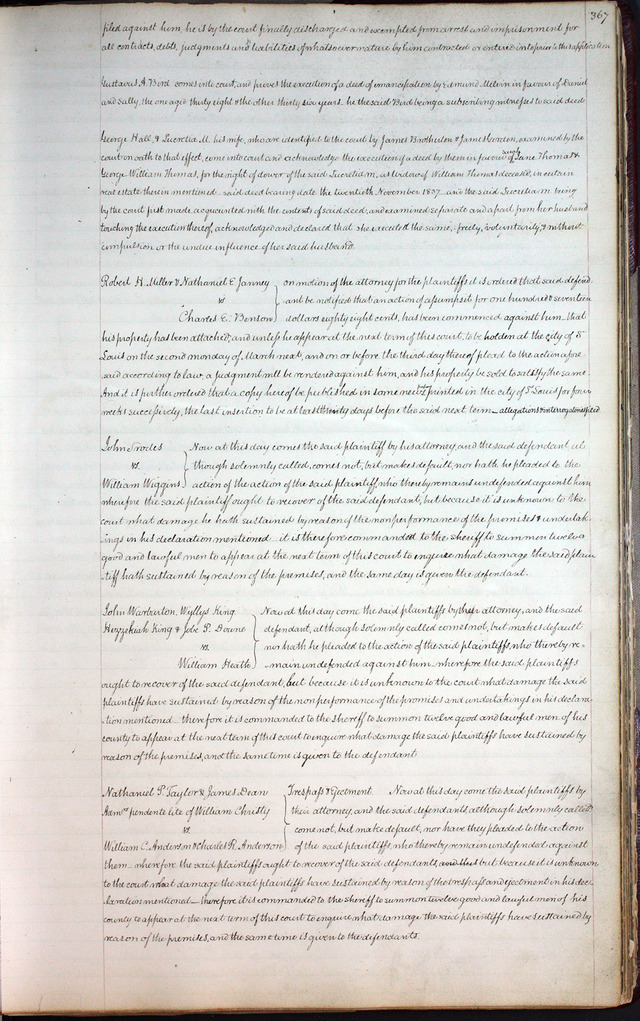 367
filed against him, he is by the court finally discharged and exempted from arrest and imprisonment for
all contracts, debts, judgments and liabilities of whatsoever nature by him contracted or entered into prior to this application
Gustavus A. Bird comes into court, and proves the execution of a deed of emancipation by Edmund Melvin in favour of Daniel
and Sally, the one aged thirty eight & the other thirty six years. he the said Bird being a subscribing witness to said deed
George Hall, & Lucretia M. his wife, who are identified to the court by James Brotherton & James Gordon, examined by the
court on oath to that effect, come into court and acknowledge the execution of a deed by them in favour of Jane Thomas &
George William Thomas, for the right of dower of the said Lucretia M, as widow of William Thomas deceased, in certain
real estate therein mentioned said deed bearing date the twentieth November 1837 and the said Lucretia M. being
by the court first made acquainted with the contents of said deed, and examined separate and apart from her husband
touching the execution thereof, acknowledged and declared that she executed the same, freely, voluntarily, & without
compulsion or the undue influence of her said husband.
Robert H. Miller & Nathaniel E. Janney on motion of the attorney for the plaintiffs it is ordered that said defend
vs ant be notified that an action of assumpsit for one hundred & seventeen
Charles E. Benson dollars eighty eight cents, has been commenced against him that
his property has been attached, and unless he appear at the next term of this court, to be holden at the city of St
Louis on the second monday of March next, and on or before the third day thereof plead to the action afore
said according to law, a judgment will be rendered against him, and his property be sold to satisfy the same.
And it is further ordered that a copy hereof be published in some newspr printed in the city of St Louis for four
weeks successively, the last insertion to be at least thirty days before the said next term
John Now at this day comes the said plaintiff by his attorney, and the said defendant al
vs. though solemnly called, comes not, but makes default, nor hath he pleaded to the
William Wiggins action of the action of the said plaintiff, who thereby remains undefended against him
wherefore the said plaintiff ought to recover of the said defendant, but because it is unknown to the
court what damage he hath sustained by reason of the nonperformance of the premises & undertak-
ings in his declaration mentioned it is therefore commanded to the sheriff to summon twelve
good and lawful men to appear at the next term of this court to enquire what damage the said plain
tiff hath sustained by reason of the premises, and the same day is given the defendant.
John Warburton, Wyllys King Now at this day come the said plaintiffs by their attorney, and the said
Hezzekiah King & Jobe P. Doane defendant, although solemnly called comes not, but makes default
vs. nor hath he pleaded to the action of the said plaintiffs, who thereby re-
William Heath main undefended against him wherefore the said plaintiffs
ought to recover of the said defendant, but because it is unknown to the court what damage the said
plaintiffs have sustained by reason of the nonperformance of the promises and undertakings in his declara-
tion mentioned therefore it is commanded to the sheriff to summon twelve good and lawful men of his
county to appear at the next term of this court to enquire what damage the said plaintiffs have sustained by
reason of the premises, and the same time is given to the defendant
Nathaniel P. Taylor & James Dean Trespass & Ejectment. Now at this day come the said plaintiffs by
Admrs pendente lite of William Christy their attorney, and the said defendants, although solemnly called
vs. come not, but make default, nor have they pleaded to the action
William C. Anderson & Charles R. Anderson of the said plaintiffs who thereby remain undefended against
them wherefore the said plaintiffs ought to recover of the said defendants, and this but because it is unknown
to the court what damage the said plaintiffs have sustained by reason of the trespass and ejectment in his dec
laration mentioned therefore it is commanded to the sheriff to summon twelve good and lawful men of his
county to appear at the next term of this court to enquire what damage the said plaintiffs have sustained by
reason of the premises, and the same time is given to the defendants.